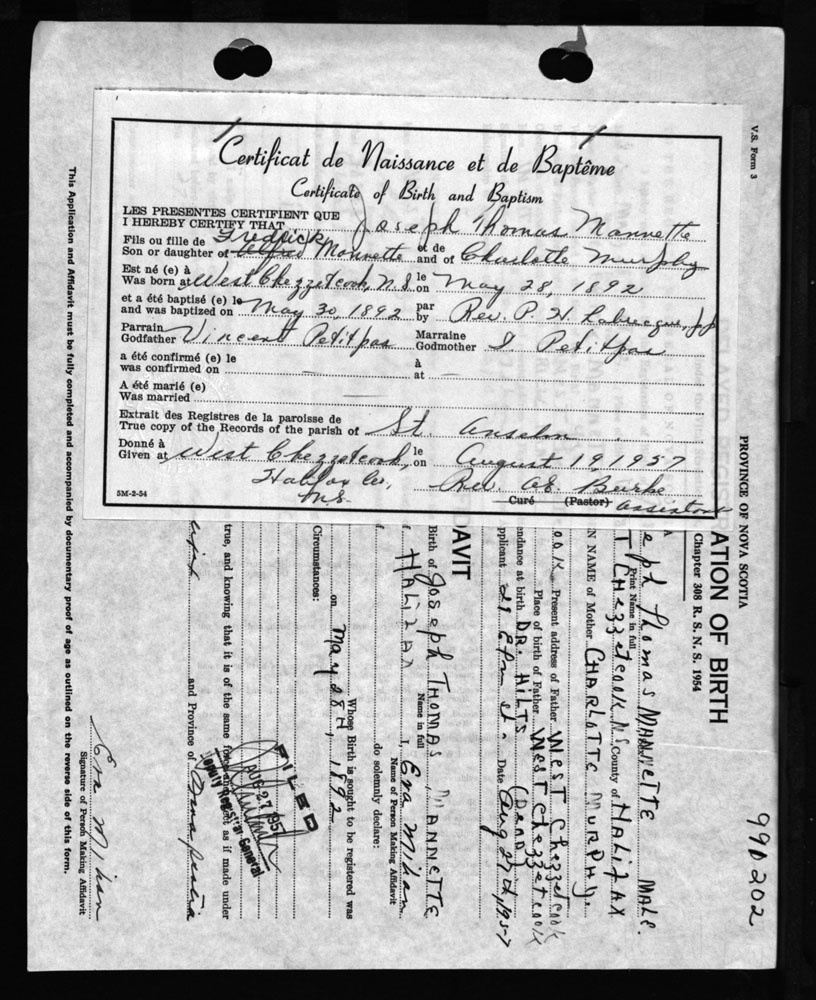 Certificat de Naissance et de Baptême
Certificate of Birth and Baptism
LES PRESENTES CERTIFIENT QUE
I HEREBY CERTIFY THAT Joseph Thomas Mannette
Fredrick
Fils ou fille de et de
Son or daughter of Alfred Mannette and of Charlotte Murphy
Est né (e) à le
Was born at West Chezzetcook, N.S. on May 28, 1892
et a été baptisé (e) le par
and was baptized on May 30, 1892 by Rev. P. H.
Parrain Marraine
Godfather Vincent Petitpas Godmother S Petitpas
a été confirmé (e) le à
was confirmed on at
A été marié (e)
Was married
Extrait des Registres de la paroisse de
True copy of the Records of the parish of St. Anselm
Donné à le
Given at West Chezzetcook, on August 19, 1957
Halifax Co., Rev. Burke
N.S.
5M-2-54 Curé (Pastor) assistant
V.S. Form 3
PROVINCE OF NOVA SCOTIA
99D202
ATION OF BIRTH
Chapter 308 R. S. N. S. 1954
eph Thomas MANNETTE MALE.
Print Name in full
T CHezzetcook N.S. County of HALifAX
N NAME of Mother CHARLOTTE MURPHY.
ook Present address of Father West Chezzetcook
Place of birth of Father West Chezzetcook
endance at birth DR. HILTS (Dead)
pplicant Date Aug 27th, 1957
DAVIT
Birth of Joseph THOMAS MANNETTE
Name in full
f HALifAX I, Eva Mihan
Name of Person Making Affidavit
f. do solemnly declare:
Whose Birth is sought to be registered was
on May 28th, 1892
Circumstances:
FILED
AUG 27 1957
Deputy Registrar General
true, and knowing that it is of the same force and effect as if made under
and Province of Nova Scotia
Eva Mihan
Signature of Person Making Affidavit
This Application and Affidavit must be fully completed and accompanied by documentary proof of age as outlined on the reverse side of this form.